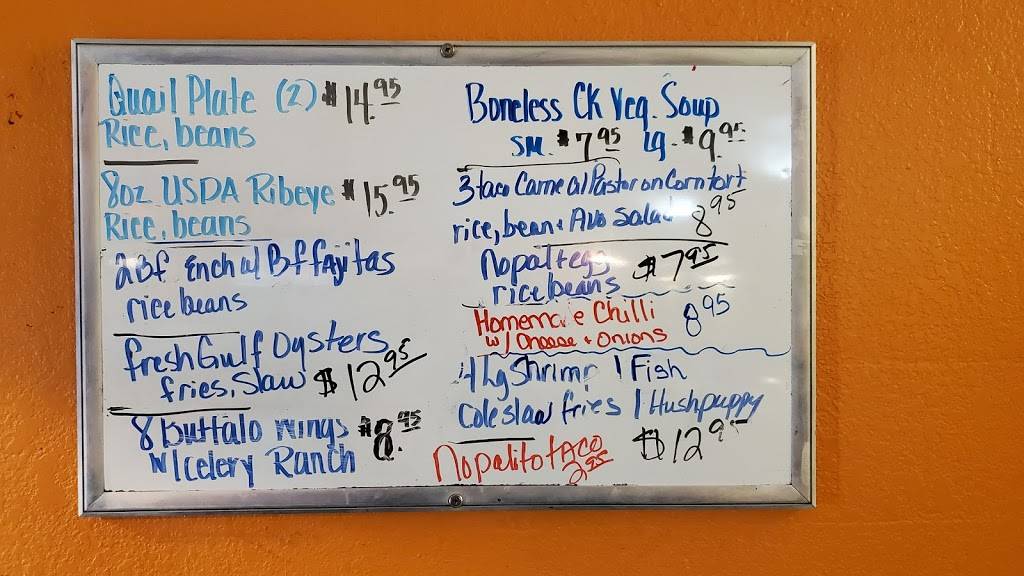 Quail Plate (2) $14.95
Rice, beans
8oz USDA Ribeye $15.95
Rice, beans
2Bf Ench w/ Bf fajitas
rice beans
fresh Gulf Oysters
fries, slaw $12.95
8 Buffalo wings $8.95
w/celery Ranch
Boneless CK Veg. Soup
SM $7.95 Lg $9.95
3 taco Carne al Pastor on Corn tort
rice, bean + Avo Salad 8.95
Nopal + egg $7.95
rice beans
Homemade Chilli 8.95
w/ Cheese + Onions
4 Lg Shrimp 1 Fish
Coleslaw fries 1 Hushpuppy
$12.95
Nopalito taco
2.95